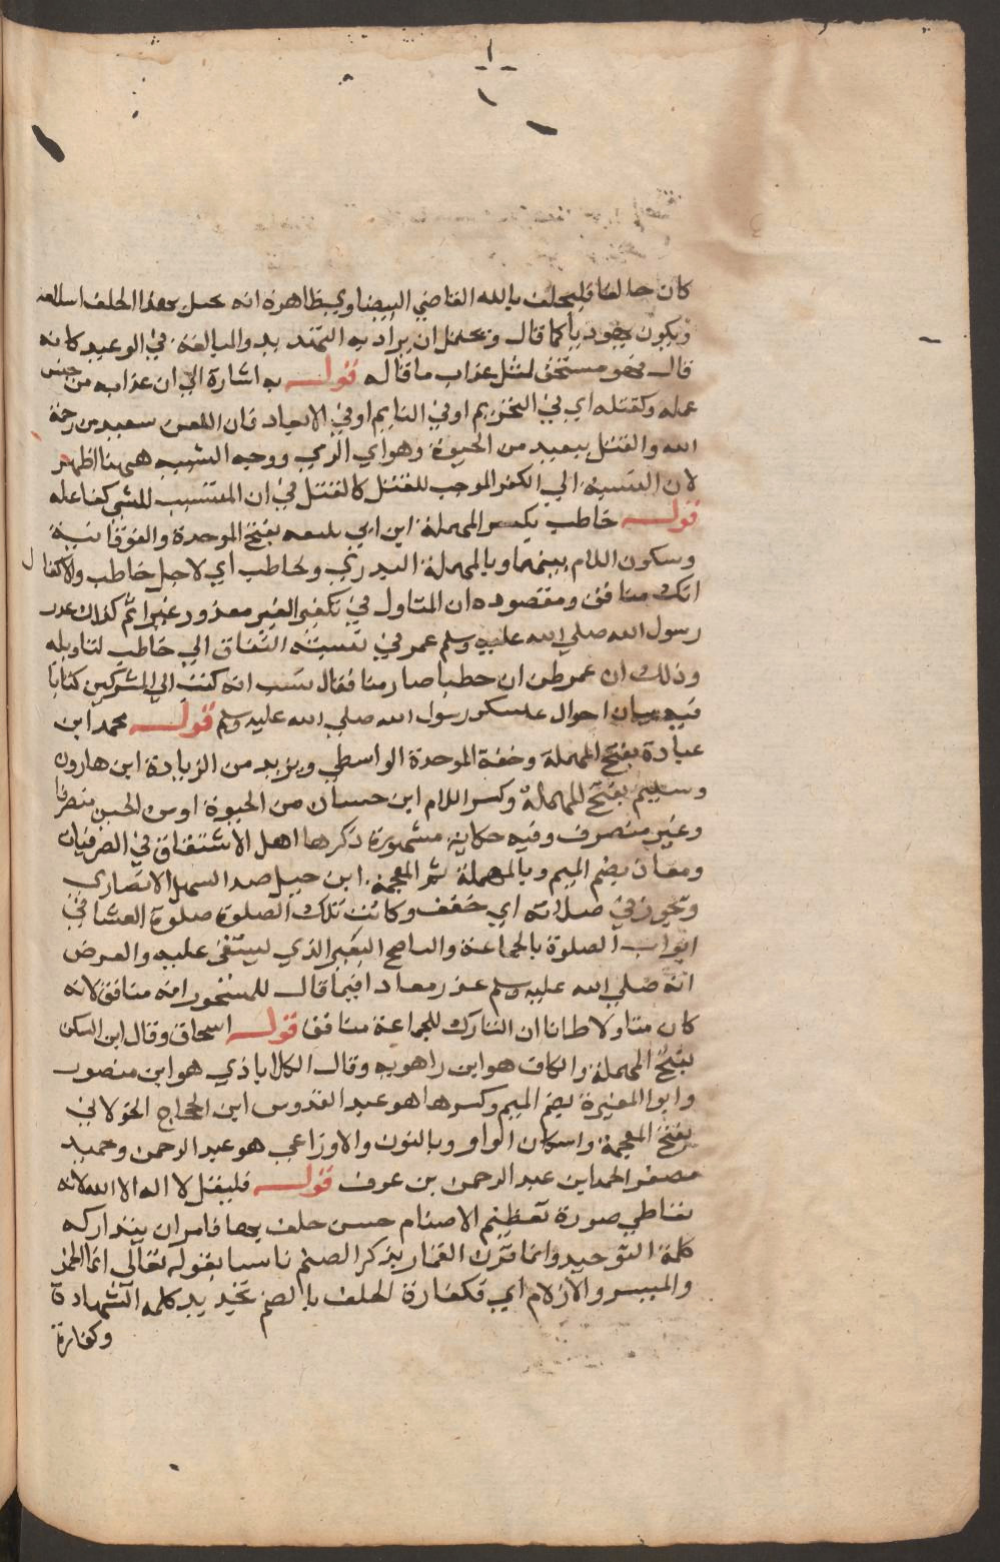 كان حالفا فليحلف بالله القاضي البيضاوي ظاهره انه يختل بهذا الحلف اسلامه
ويكون يهوديا كما قال ويحتمل ان يراد به التهديد والمبالغة في الوعيد كانه
قال فهو مستحق لمثل عذاب ما قاله قوله به اشارة الي ان عذابه من جنس
عمله وكقتله اي في التحريم او في التاثيم او في الابعاد فان اللعن تبعيد من رحمة
الله والقتل تبعيد من الحيوة وهو اي الرمي ووجه الشبيه ههنا اظهر
لان النسبة الي الكفر الموجب للقتل كالقتل في ان المتسبب للشي كفاعله
قوله حاطب بكسر المهملة ابن ابي بلتعه بفتح الموحدة والفوقانية
وسكون اللام بينهما وبالمهملة البدري ولحاطب اي لاجل حاطب والا لقال
انك منافق ومقصوده ان المتاول في تكفير الغير معذور غير اثم كذلك عذر
رسول الله صلي الله عليه وسلم عمر في نسبته النفاق الي حاطب لتاويله
وذلك ان عمر ظن ان حطبا صار منافقا بسبب انه كتب الي المشركين كتابا
فيه بيان احوال عسكر رسول الله صلي الله عليه وسلم قوله محمد ابن
عبادة بفتح المهملة وخفة الموحدة الواسطي ويزيد من الزيادة ابن هارون
وسليم بفتح المهملة وكسر اللام ابن حسان من الحيوة او من الحسن منصرفا
وغير منصرف وفيه حكاية مشهورة ذكرها اهل الاشتقاق في الصرفيات
ومعاذ بضم الميم وبالمهملة ثم المعجمة ابن جبل ضد السهل الانصاري
وتجوز في صلاته اي خفف وكانت تلك الصلوة صلوة العشا في
ابواب الصلوة بالجماعة والناضح البعير الذي يستقى عليه والغرض
انه صلي الله عليه وسلم عذر معاذا فيما قال للمتجوز انه منافق لانه
كان متاولا ظانا ان التارك للجماعة منافق قوله اسحاق وقال ابن السكن
بفتح المهملة والكاف هو ابن راهويه وقال الكلاباذي هو ابن منصور
وابوا المغيرة بضم الميم وكسرها هو عبد القدوس ابن الحجاج الخولاني
بفتح المعجمة واسكان الواو وبالنون والاوزاعي هو عبد الرحمن وحميد
مصغر الحمد ابن عبد الرحمن بن عوف قوله فليقل لا اله الا الله لانه
تعاطي صورة تعظيم الاصنام حسن حلف بها فامر ان يتداركه
كلمة التوحيد وانما قرن القمار بذكر الصنم تاسيا بقوله تعالى انما الخمر
والميسر والازلام اي فكفارة الحلف بالصنم تجديد كلمه الشهادة
وكفارة